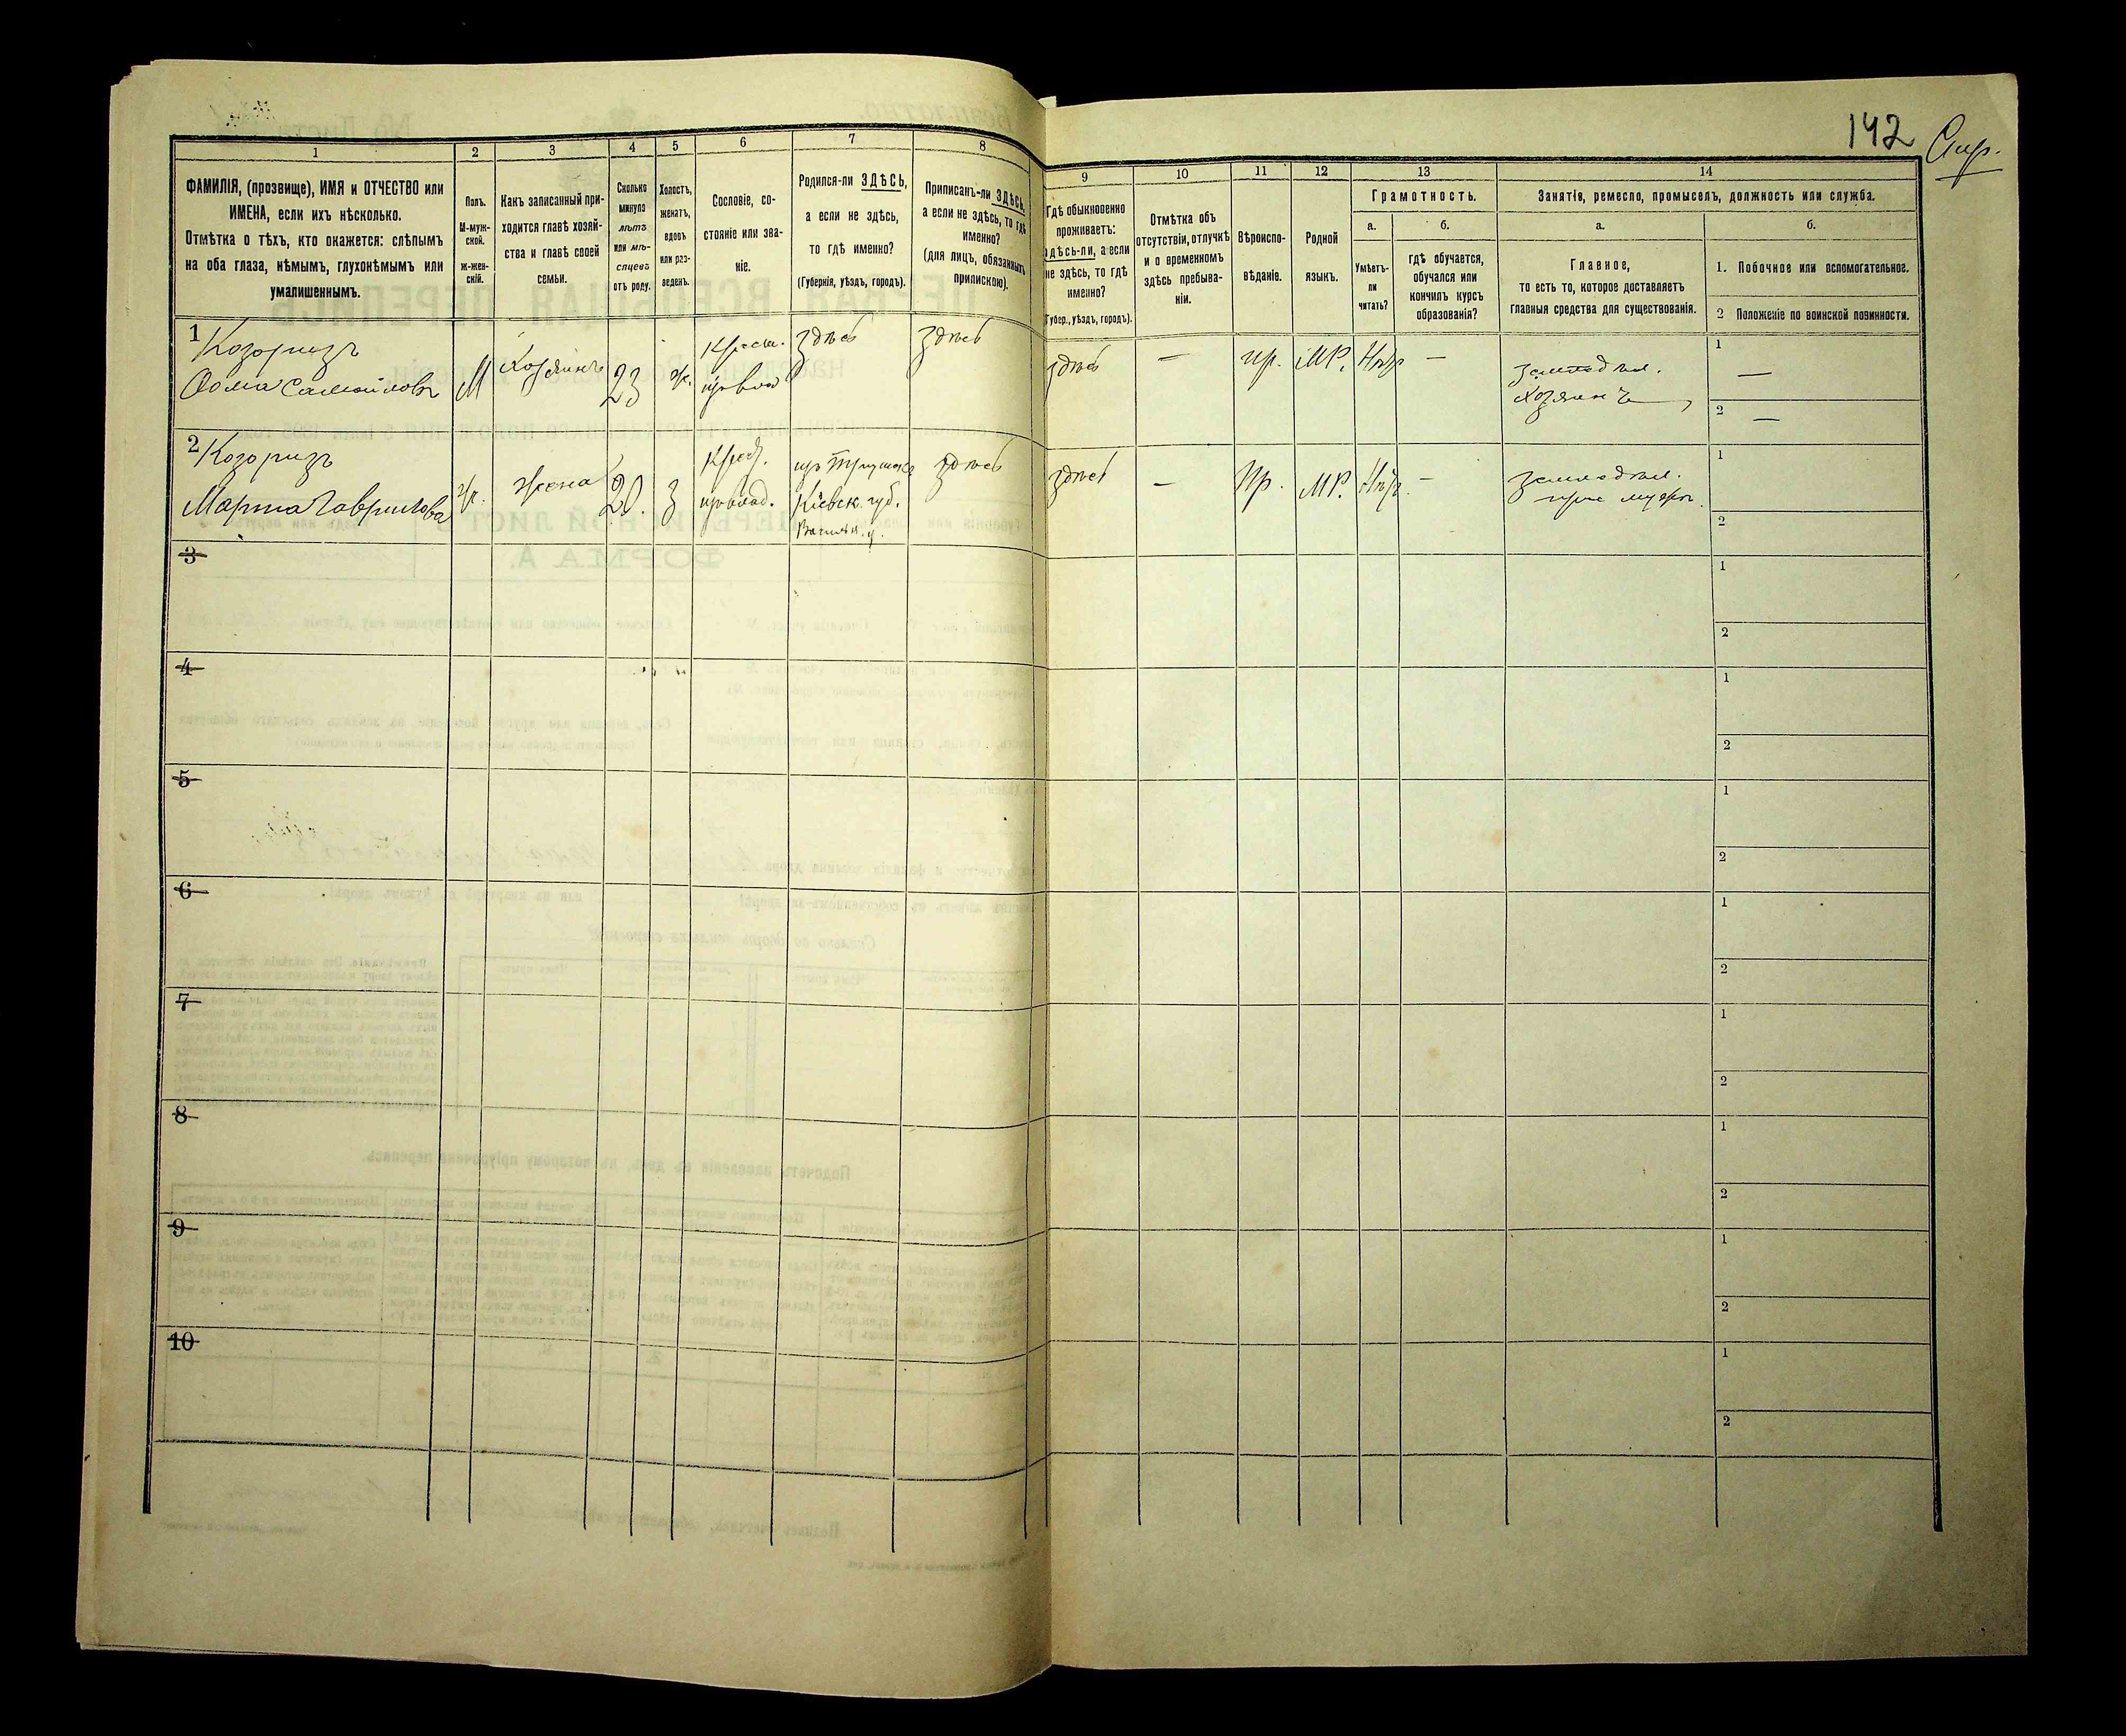 142
1
2
3
4
5
6
7
8
ФАМИЛІЯ, (прозвище), ИМЯ и ОТЧЕСТВО или
ИМЕНА, если ихъ нѣсколько.
Отмѣтка о тѣхъ, кто окажется: слѣпымъ
на оба глаза, нѣмымъ, глухонѣмымъ или
умалишеннымъ.
Полъ.
М-муж-
ской.
Ж-жен-
скій.
Какъ записанный при-
ходится главѣ хозяй-
ства и главѣ своей
семьи.
Сколько
минуло
лѣтъ
или мѣ-
сяцевъ
отъ роду.
Холостъ,
женатъ,
вдовъ
или раз-
веденъ.
Сословіе, со-
стояніе или зва-
ніе.
Родился-ли ЗДѢСЬ,
а если не здѣсь,
то гдѣ именно?
(Губернія, уѣздъ, городъ).
Приписанъ-ли ЗДѢСЬ,
а если не здѣсь, то гдѣ
именно?
(для лицъ, обязанныхъ
припискою).
9
10
11
12
13
14
Гдѣ обыкновенно
проживаетъ:
здѣсь-ли, а если
не здѣсь, то гдѣ
именно?
(Губер., уѣздъ, городъ).
Отмѣтка объ
отсутствіи, отлучкѣ
и о временномъ
здѣсь пребыва-
ніи.
Вѣроиспо-
вѣданіе.
Родной
языкъ.
Грамотность.
а.
б.
Умѣетъ-
ли
читать?
гдѣ обучается,
обучался или
кончилъ курсъ
образованія?
Занятія, ремесло, промыселъ, должность или служба.
а.
б.
Главное,
то есть то, которое доставляетъ
главныя средства для существованія.
1. Побочное или вспомогательное.
2 Положеніе по воинской повинности.
1
Козоризъ
Ѳома Самойловъ
М
Хозяинъ
23
ж.
Крест.
здѣсь
здѣсь
здѣсь
—
пр.
МР.
Нѣтъ
—
земледѣл.
Хозяинъ
1
—
2
—
2
Козоризъ
Марта Гаврилова
ж.
жена
20.
з
здѣсь
Кіевск. губ.
здѣсь
—
Пр.
МР.
Нѣтъ
—
земледѣл.
при мужѣ.
1
2
3
1
2
4
1
2
5
1
2
6
1
2
7
1
2
8
1
2
9
1
2
10
1
2